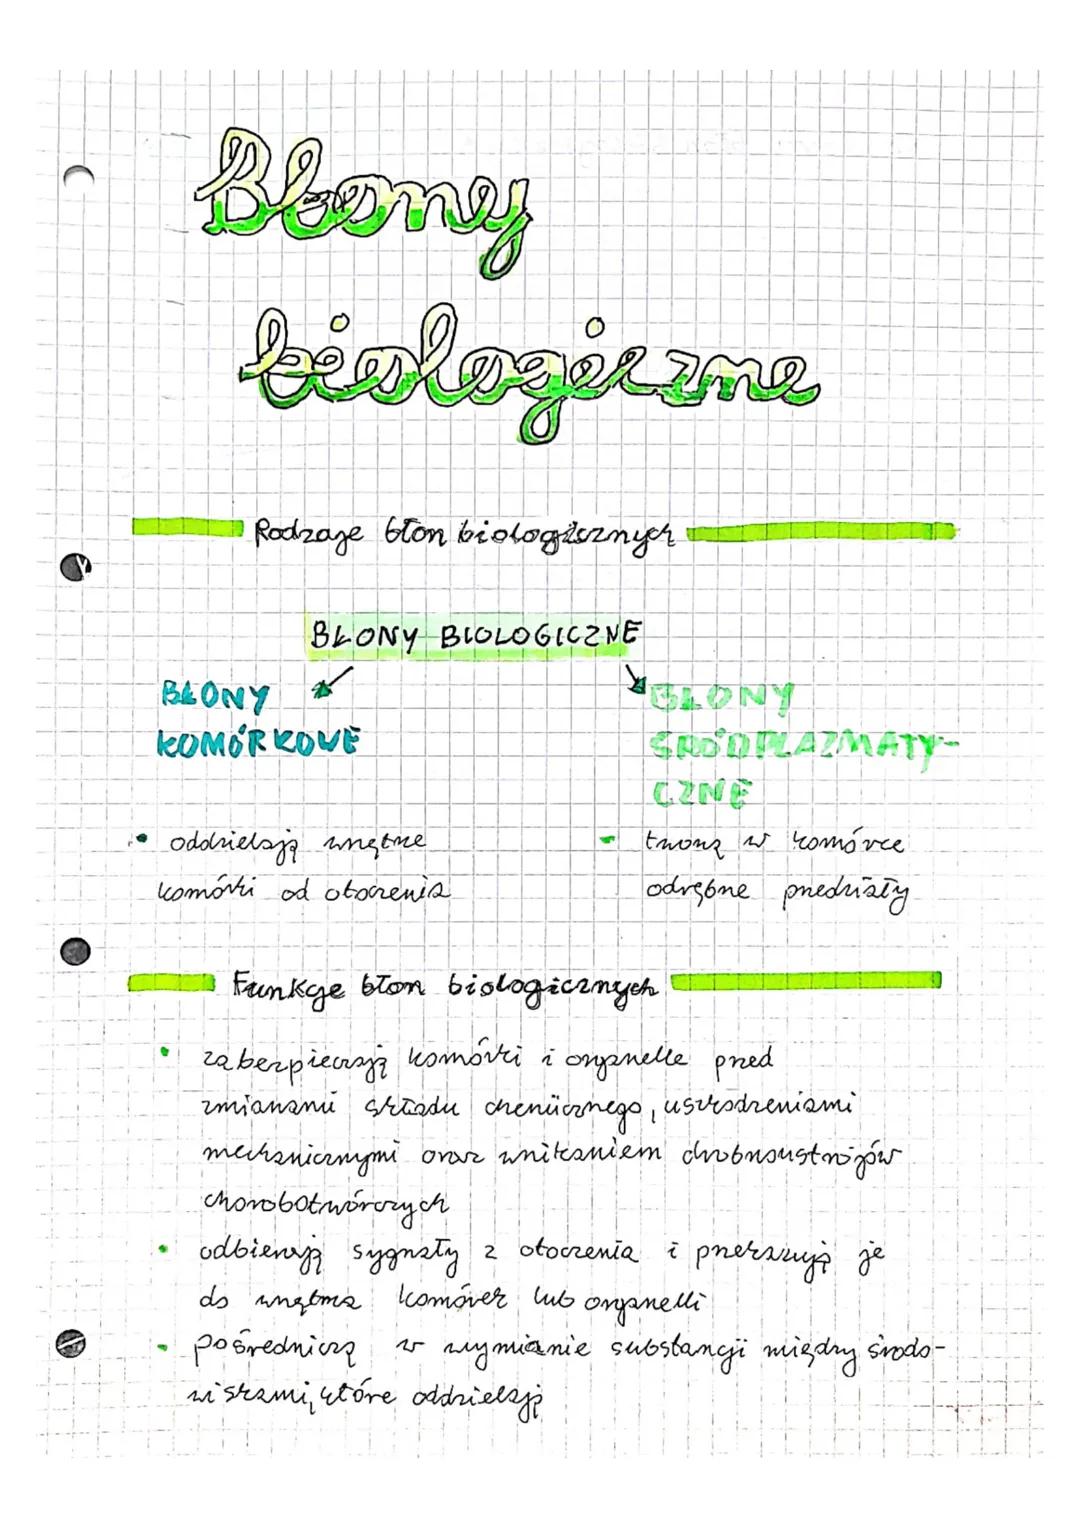 Błony
biologiczne
Rodzaje błon biologicznych
BŁONY BIOLOGICZNE
BŁONY
KOMÓRKOWE
BŁONY
ŚRÓDPLAZMATY-
CZNE
• oddzielają wnętrze
komórki od otoczenia
- tworzą w komórce
odrębne przedziały
Funkcje błon biologicznych
• zabezpieczają komórki i organelle przed
zmianami składu chemicznego, uszkodzeniami
mechanicznymi oraz wnikaniem drobnoustrojów
chorobotwórczych
• odbierają sygnały z otoczenia i przekazują je
do wnętrza komórek lub organelli
• pośredniczą w wymianie substancji między środo-
wiskami, które oddzielają